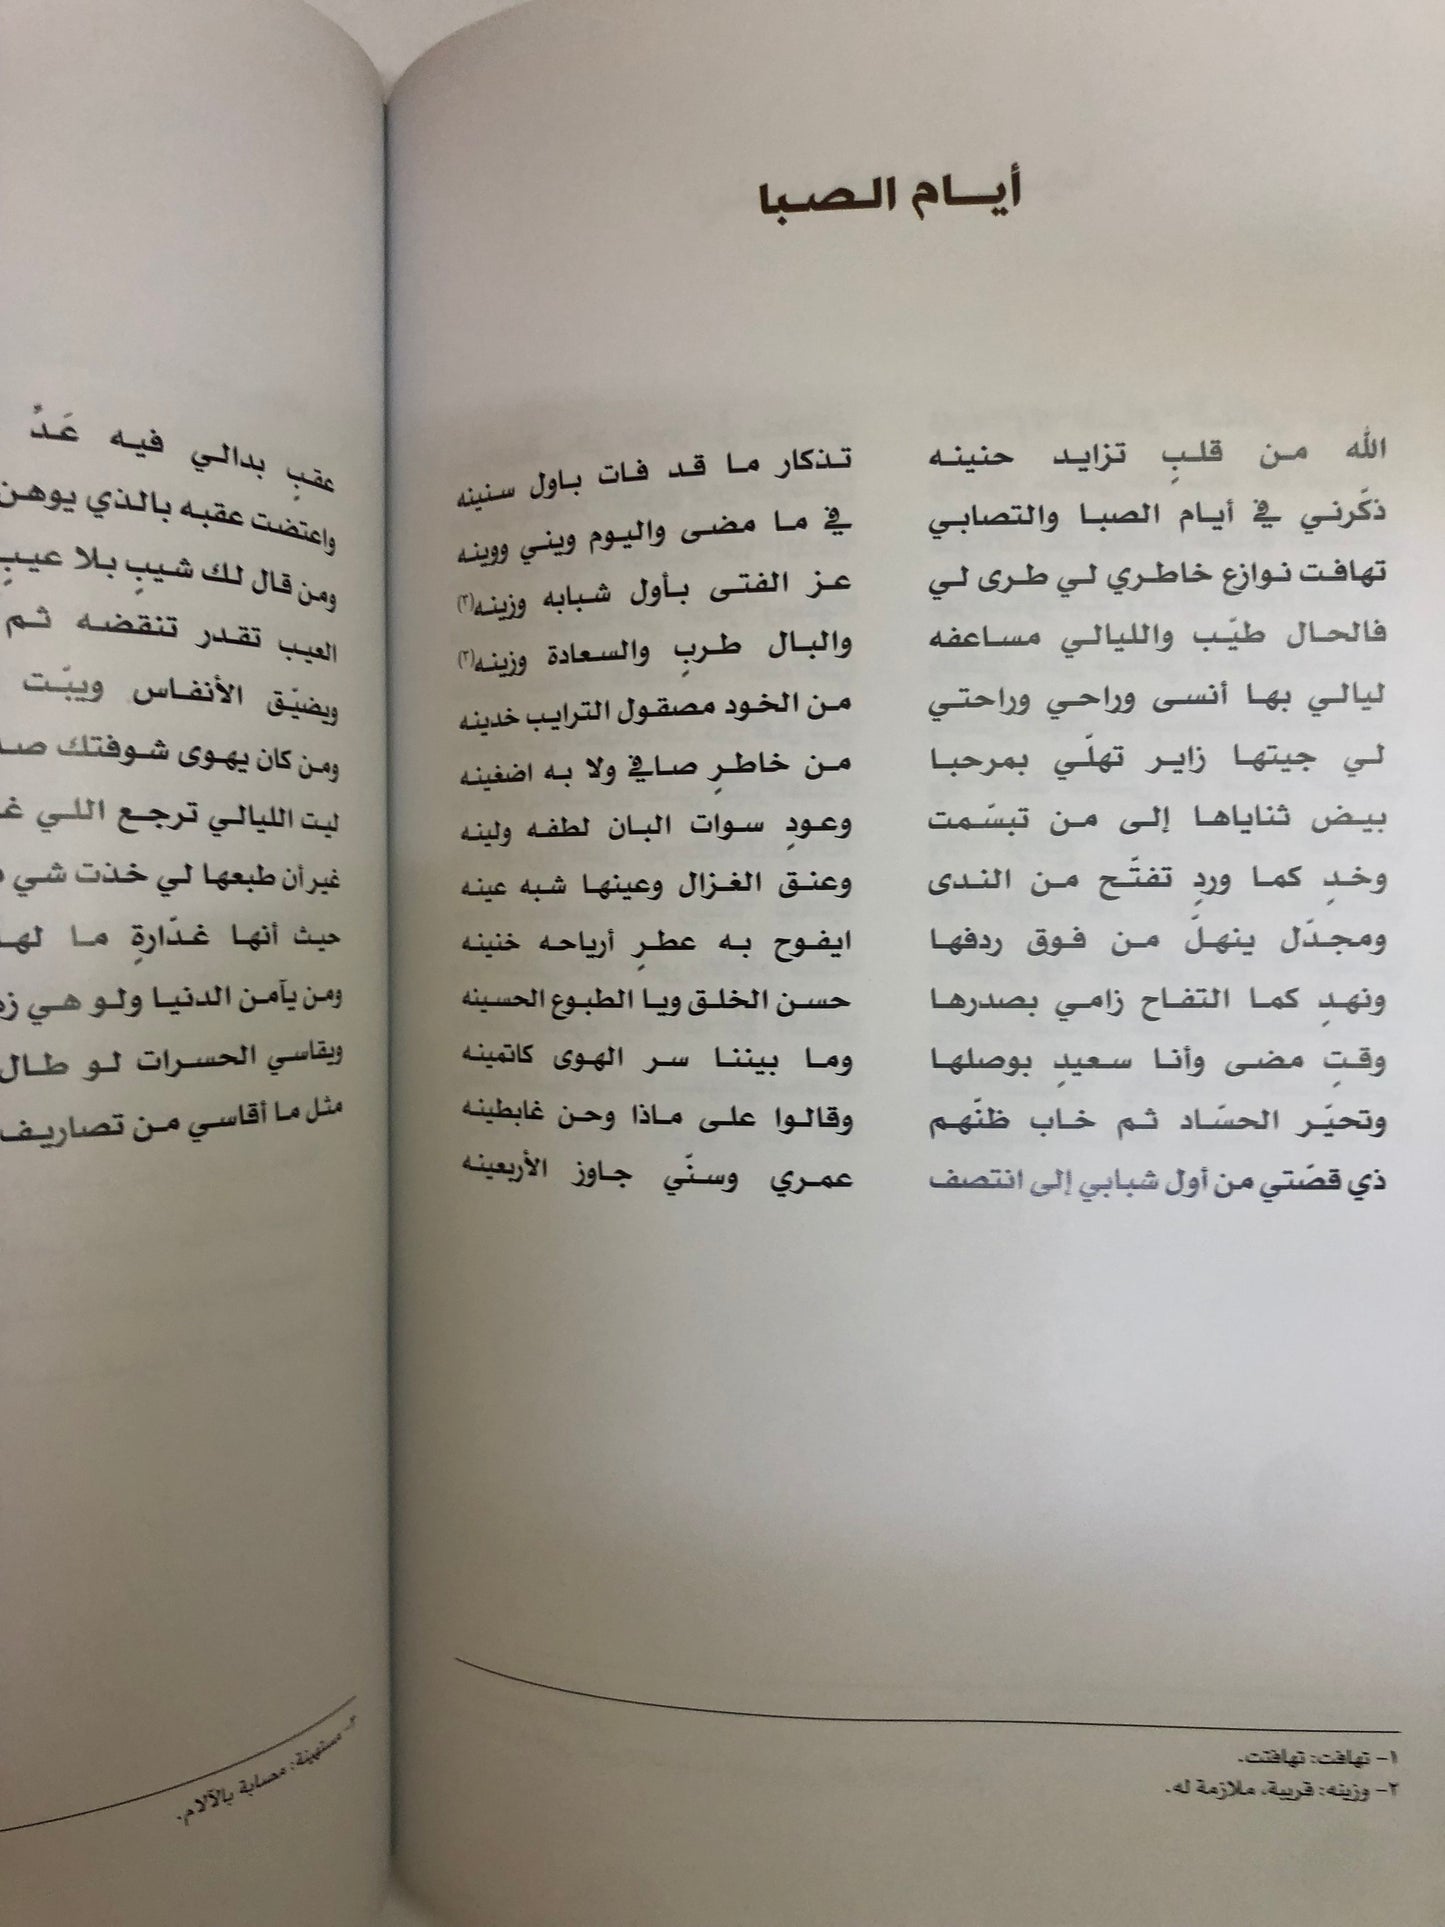 أيام الصبا
الله من قلبٍ تزايد حنينه تذكار ما قد فات باول سنينه
ذكّرني في أيام الصبا والتصابي في ما مضى واليوم ويني ووينه
تهافت نوازع خاطري لي طرى لي عز الفتى بأول شبابه وزينه(٢)
فالحال طيّب والليالي مساعفه والبال طربٍ والسعادة وزينه(٢)
ليالي بها أنسى وراحي وراحتي من الخود مصقول الترايب خدينه
لي جيتها زاير تهلّي بمرحبا من خاطرٍ صافي ولا به اضغينه
بيض ثناياها إلى من تبسّمت وعودٍ سوات البان لطفه ولينه
وخدٍ كما وردٍ تفتّح من الندى وعنق الغزال وعينها شبه عينه
ومجدّل ينهلّ من فوق ردفها ايفوح به عطرٍ أرياحه خنينه
ونهدٍ كما التفاح زامي بصدرها حسن الخلق ويا الطبوع الحسينه
وقتٍ مضى وأنا سعيدٍ بوصلها وما بيننا سر الهوى كاتمينه
وتحيّر الحسّاد ثم خاب ظنّهم وقالوا على ماذا وحن غابطينه
ذي قصّتي من أول شبابي إلى انتصف عمري وسنّي جاوز الأربعينه
١- تهافت: تهافتت.
٢- وزينه: قريبة، ملازمة له.
عقبٍ بدالي فيه عَدٍّ
واعتضت عقبه بالذي يوهن
ومن قال لك شيبٍ بلا عيبٍ
العيب تقدر تنقضه ثم
ويضيّق الأنفاس ويبّت
ومن كان يهوى شوفتك
ليت الليالي ترجع اللي
غير أن طبعها لي خذت شي
حيث أنها غدّارةٍ ما
ومن يآمن الدنيا ولو هي
ويقاسي الحسرات لو طال
مثل ما أقاسي من تصاريف
٢- ستهينة: مصابة بالآلام.